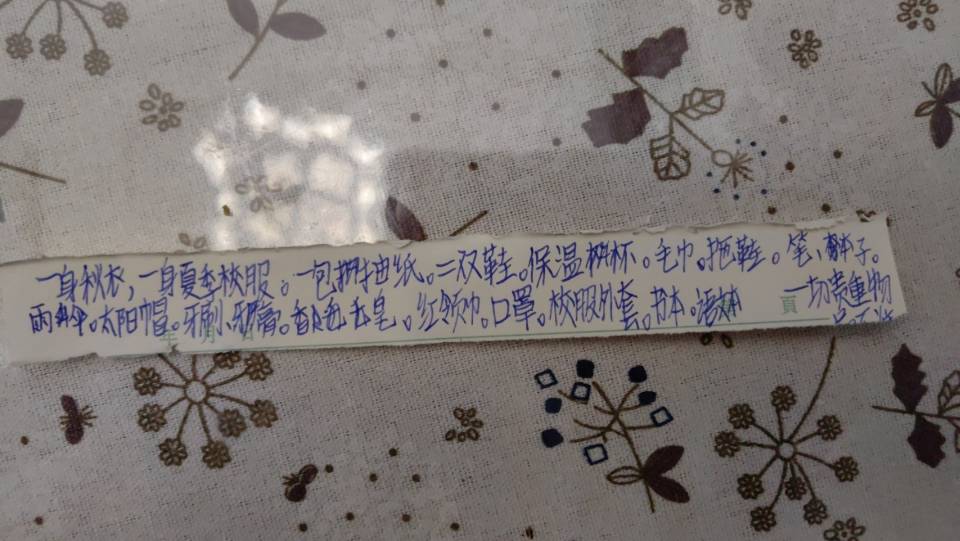 一身秋衣，一身夏季校服。一包抽纸。二双鞋。保温杯。毛巾。拖鞋。笔、本子。
雨伞。太阳帽。牙刷、牙膏。香皂。红领巾。口罩。校服外套。书本。语 一切贵重物
頁